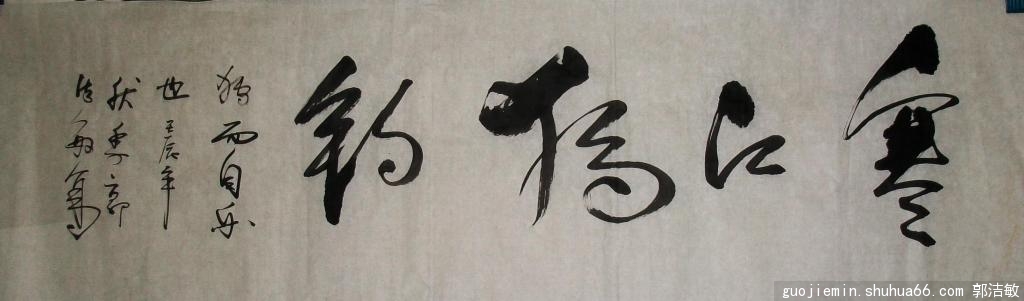 寒江獨釣
獨而自樂
也 壬辰年
秋季郭
洁敏寫
guojiemin.shuhua66.com 郭洁敏